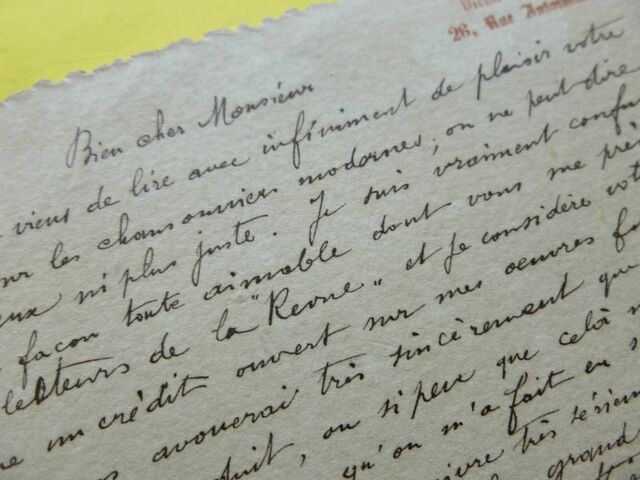 26, Rue
Bien cher Monsieur
viens de lire avec infiniment de plaisir votre
sur les chansonniers modernes; on ne peut dire
ni plus juste. Je suis vraiment
façon toute aimable dont vous me
lecteurs de la "Revue" et je considère
un crédit ouvert sur mes oeuvres
avouerai très sincèrement que
ou si peu que cela
qu'on m'a fait en
très
grand